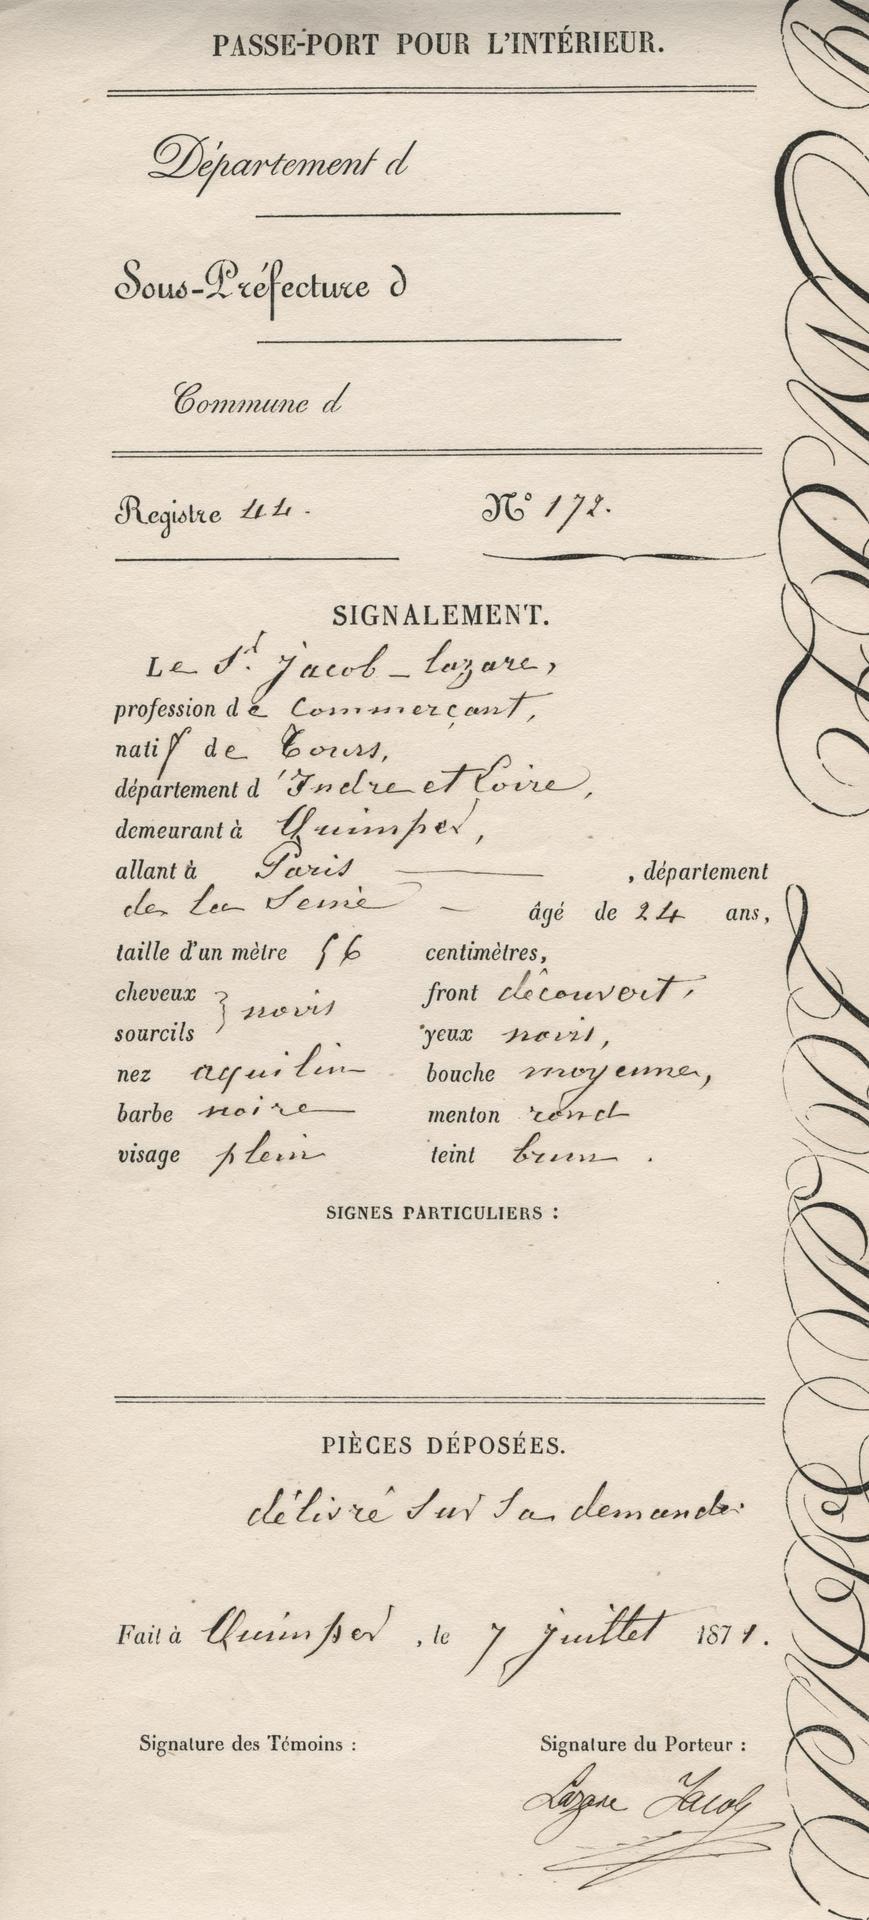 PASSE-PORT POUR L'INTÉRIEUR.
Département d
Sous-Préfecture d
Commune d
Registre 44. N° 172.
SIGNALEMENT.
Le Sr. Jacob-Lazare,
profession de Commerçant,
natif de Tours,
département d'Indre et Loire,
demeurant à Quimper,
allant à Paris — , département
de la Seine — âgé de 24 ans,
taille d'un mètre 56 centimètres,
cheveux } noirs front découvert,
sourcils yeux noirs,
nez aquilin bouche moyenne,
barbe noire menton rond
visage plein teint brun.
SIGNES PARTICULIERS :
PIÈCES DÉPOSÉES.
délivré sur sa demande.
Fait à Quimper, le 7 juillet 1871.
Signature des Témoins : Signature du Porteur :
Lazare Jacob